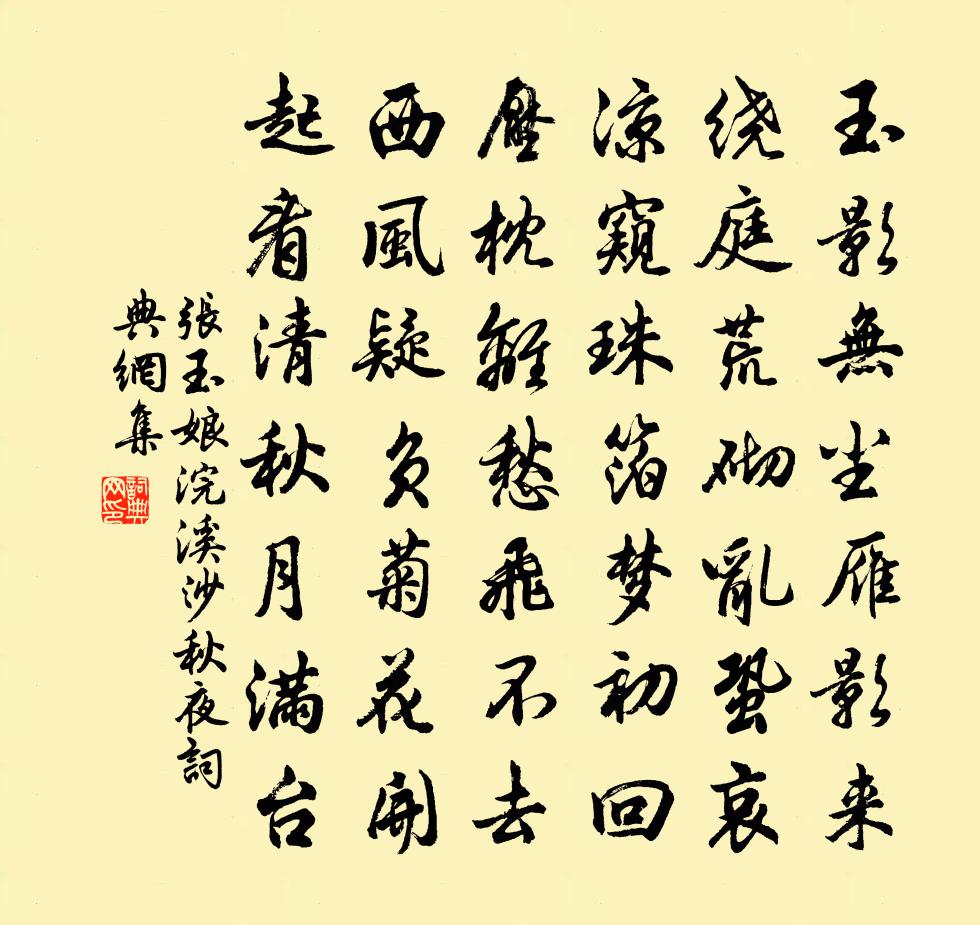 玉影無尘雁影来
绕庭荒砌亂蛩哀
凉窺珠箔梦初回
壓枕離愁飛不去
西風疑负菊花開
起看清秋月满台
張玉娘浣溪沙秋夜詞
典網集
詞典网印